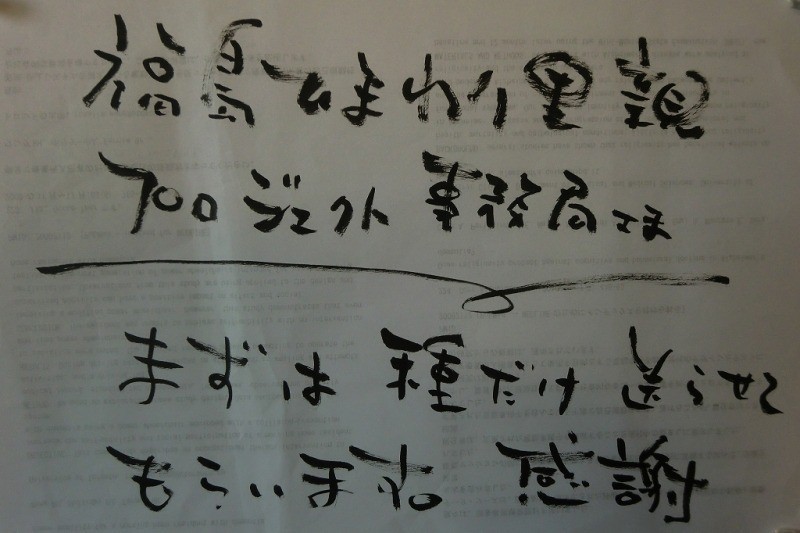 福島ひまわり里親
プロジェクト 事務局さま
まずは 種だけ 送らせて
もらいます 感謝